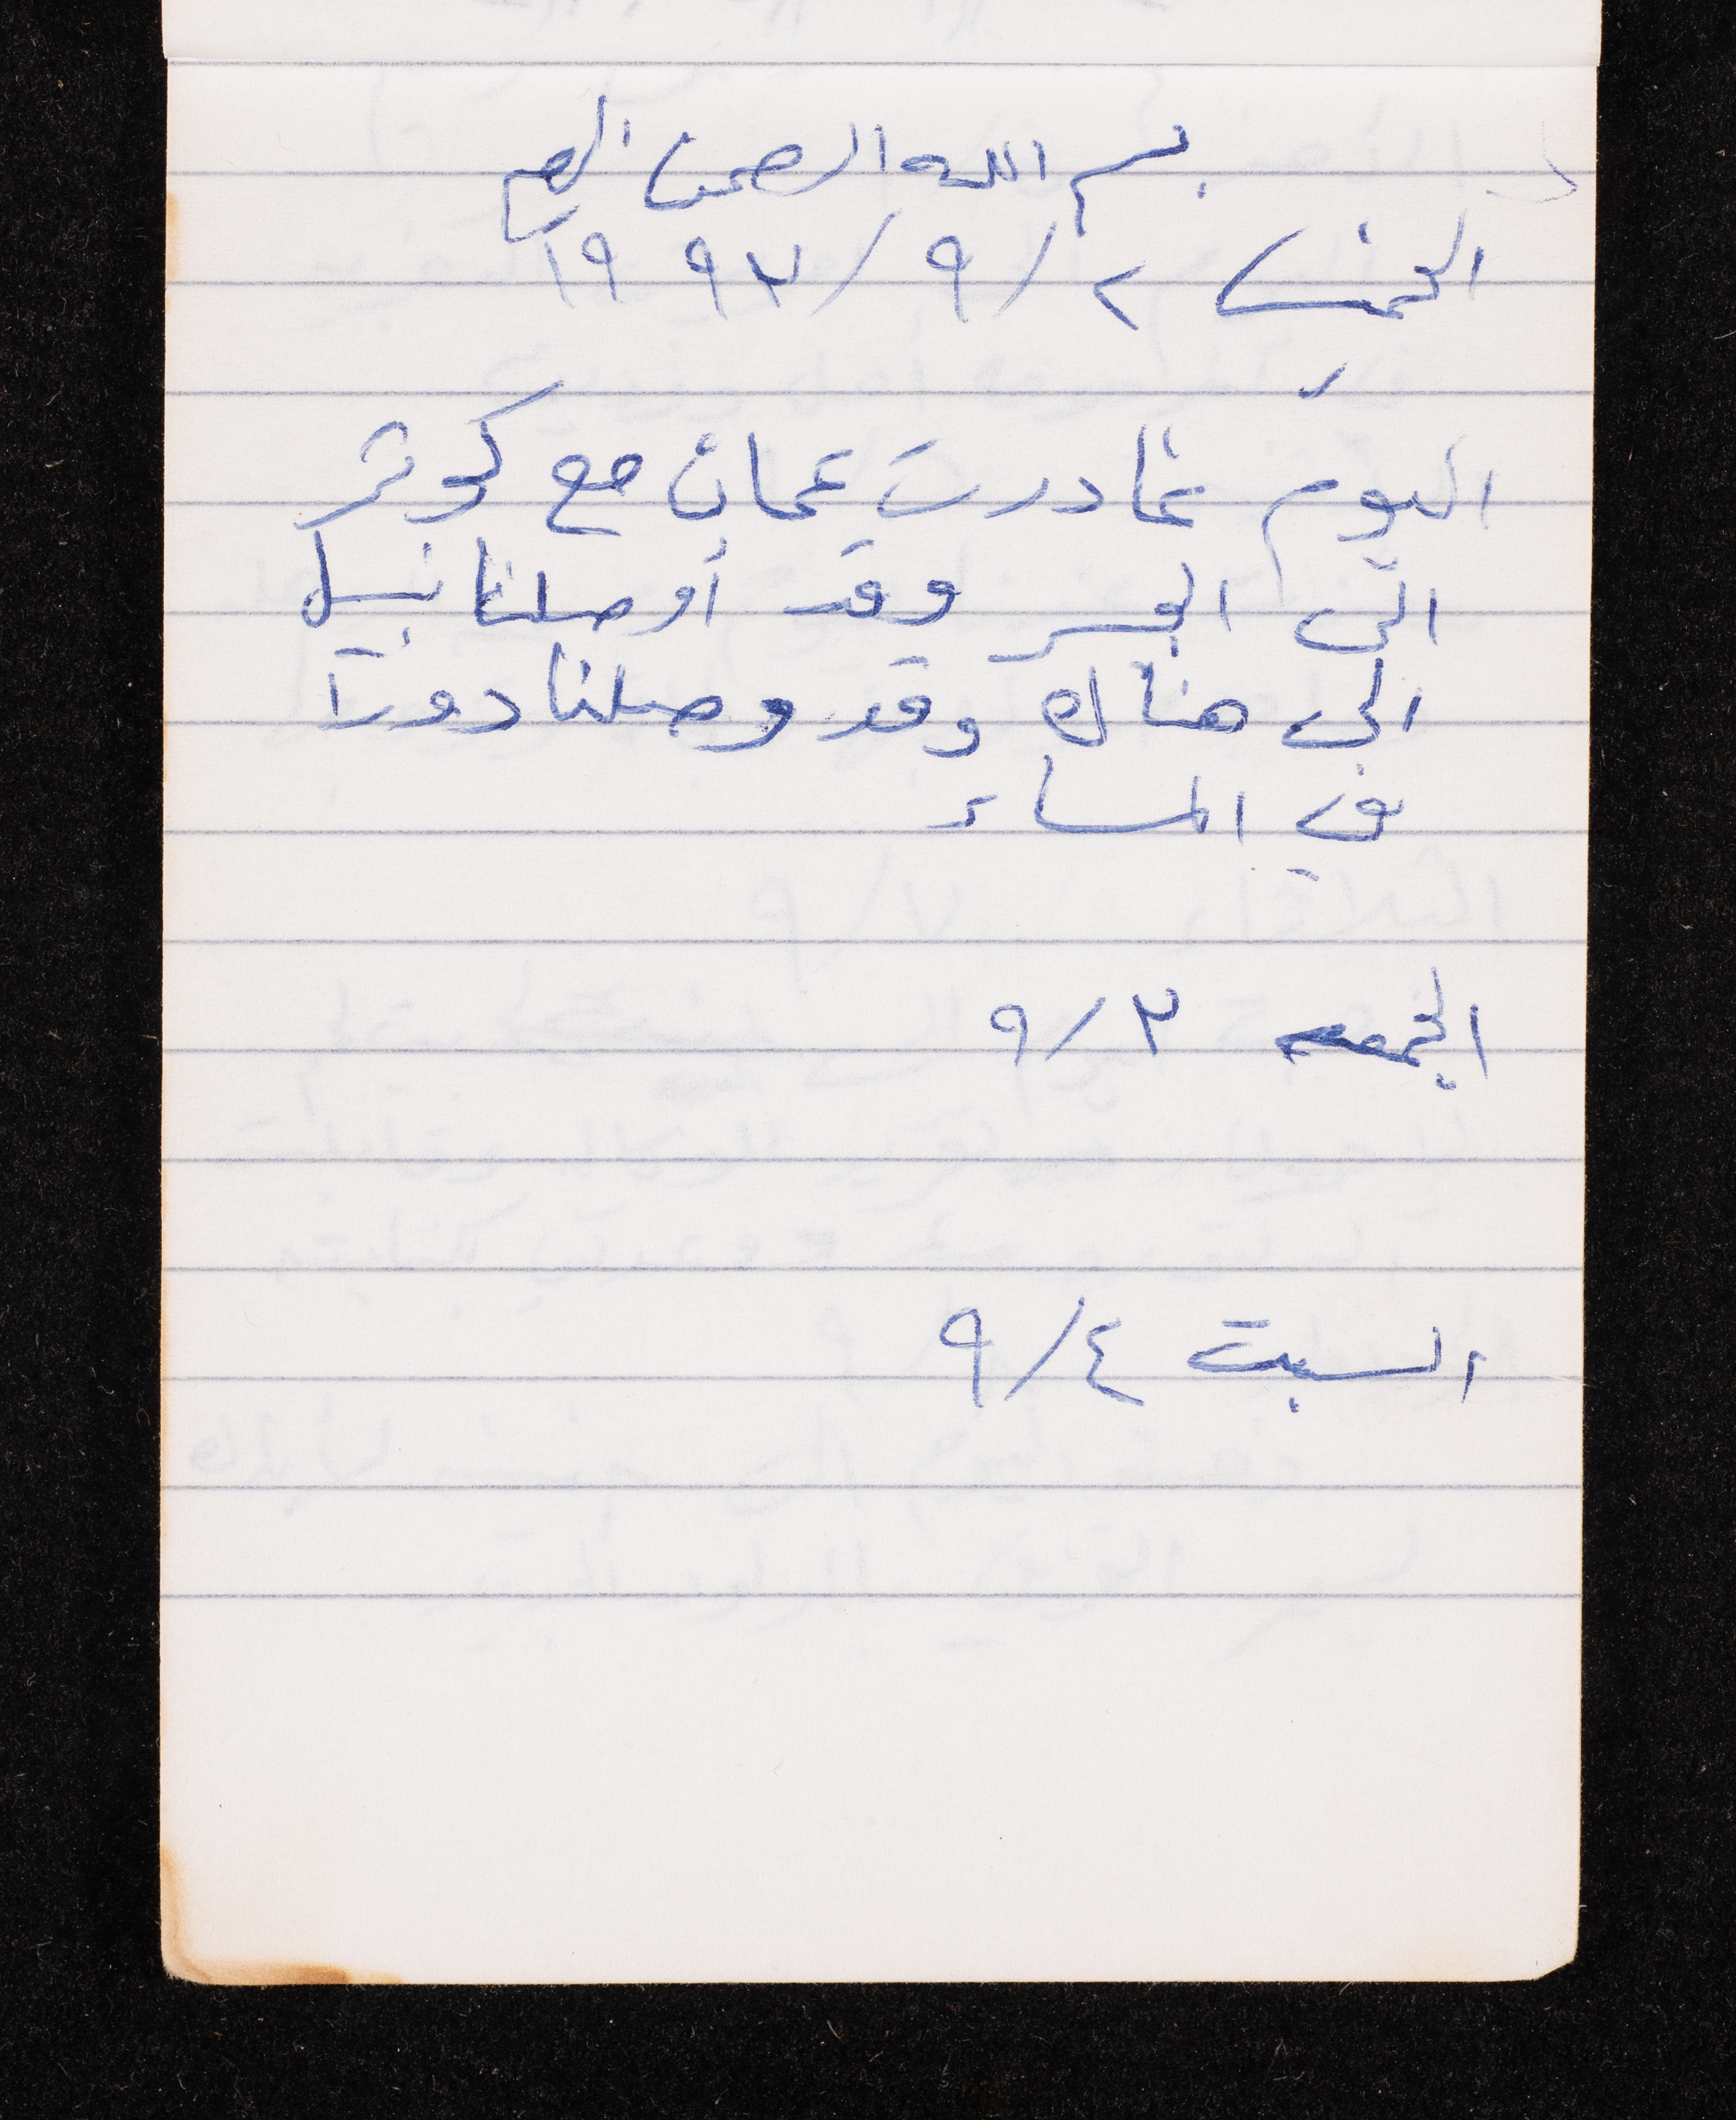 بسم الله الرحمن الرحيم
الخميس ٢/٩/١٩٩٣
اليوم غادرت عمان مع كوثر
الى الجسر وقد أوصلنا نبيل
الى هناك وقد وصلنا دورا
في المساء
الجمعه ٩/٣
السبت ٩/٤